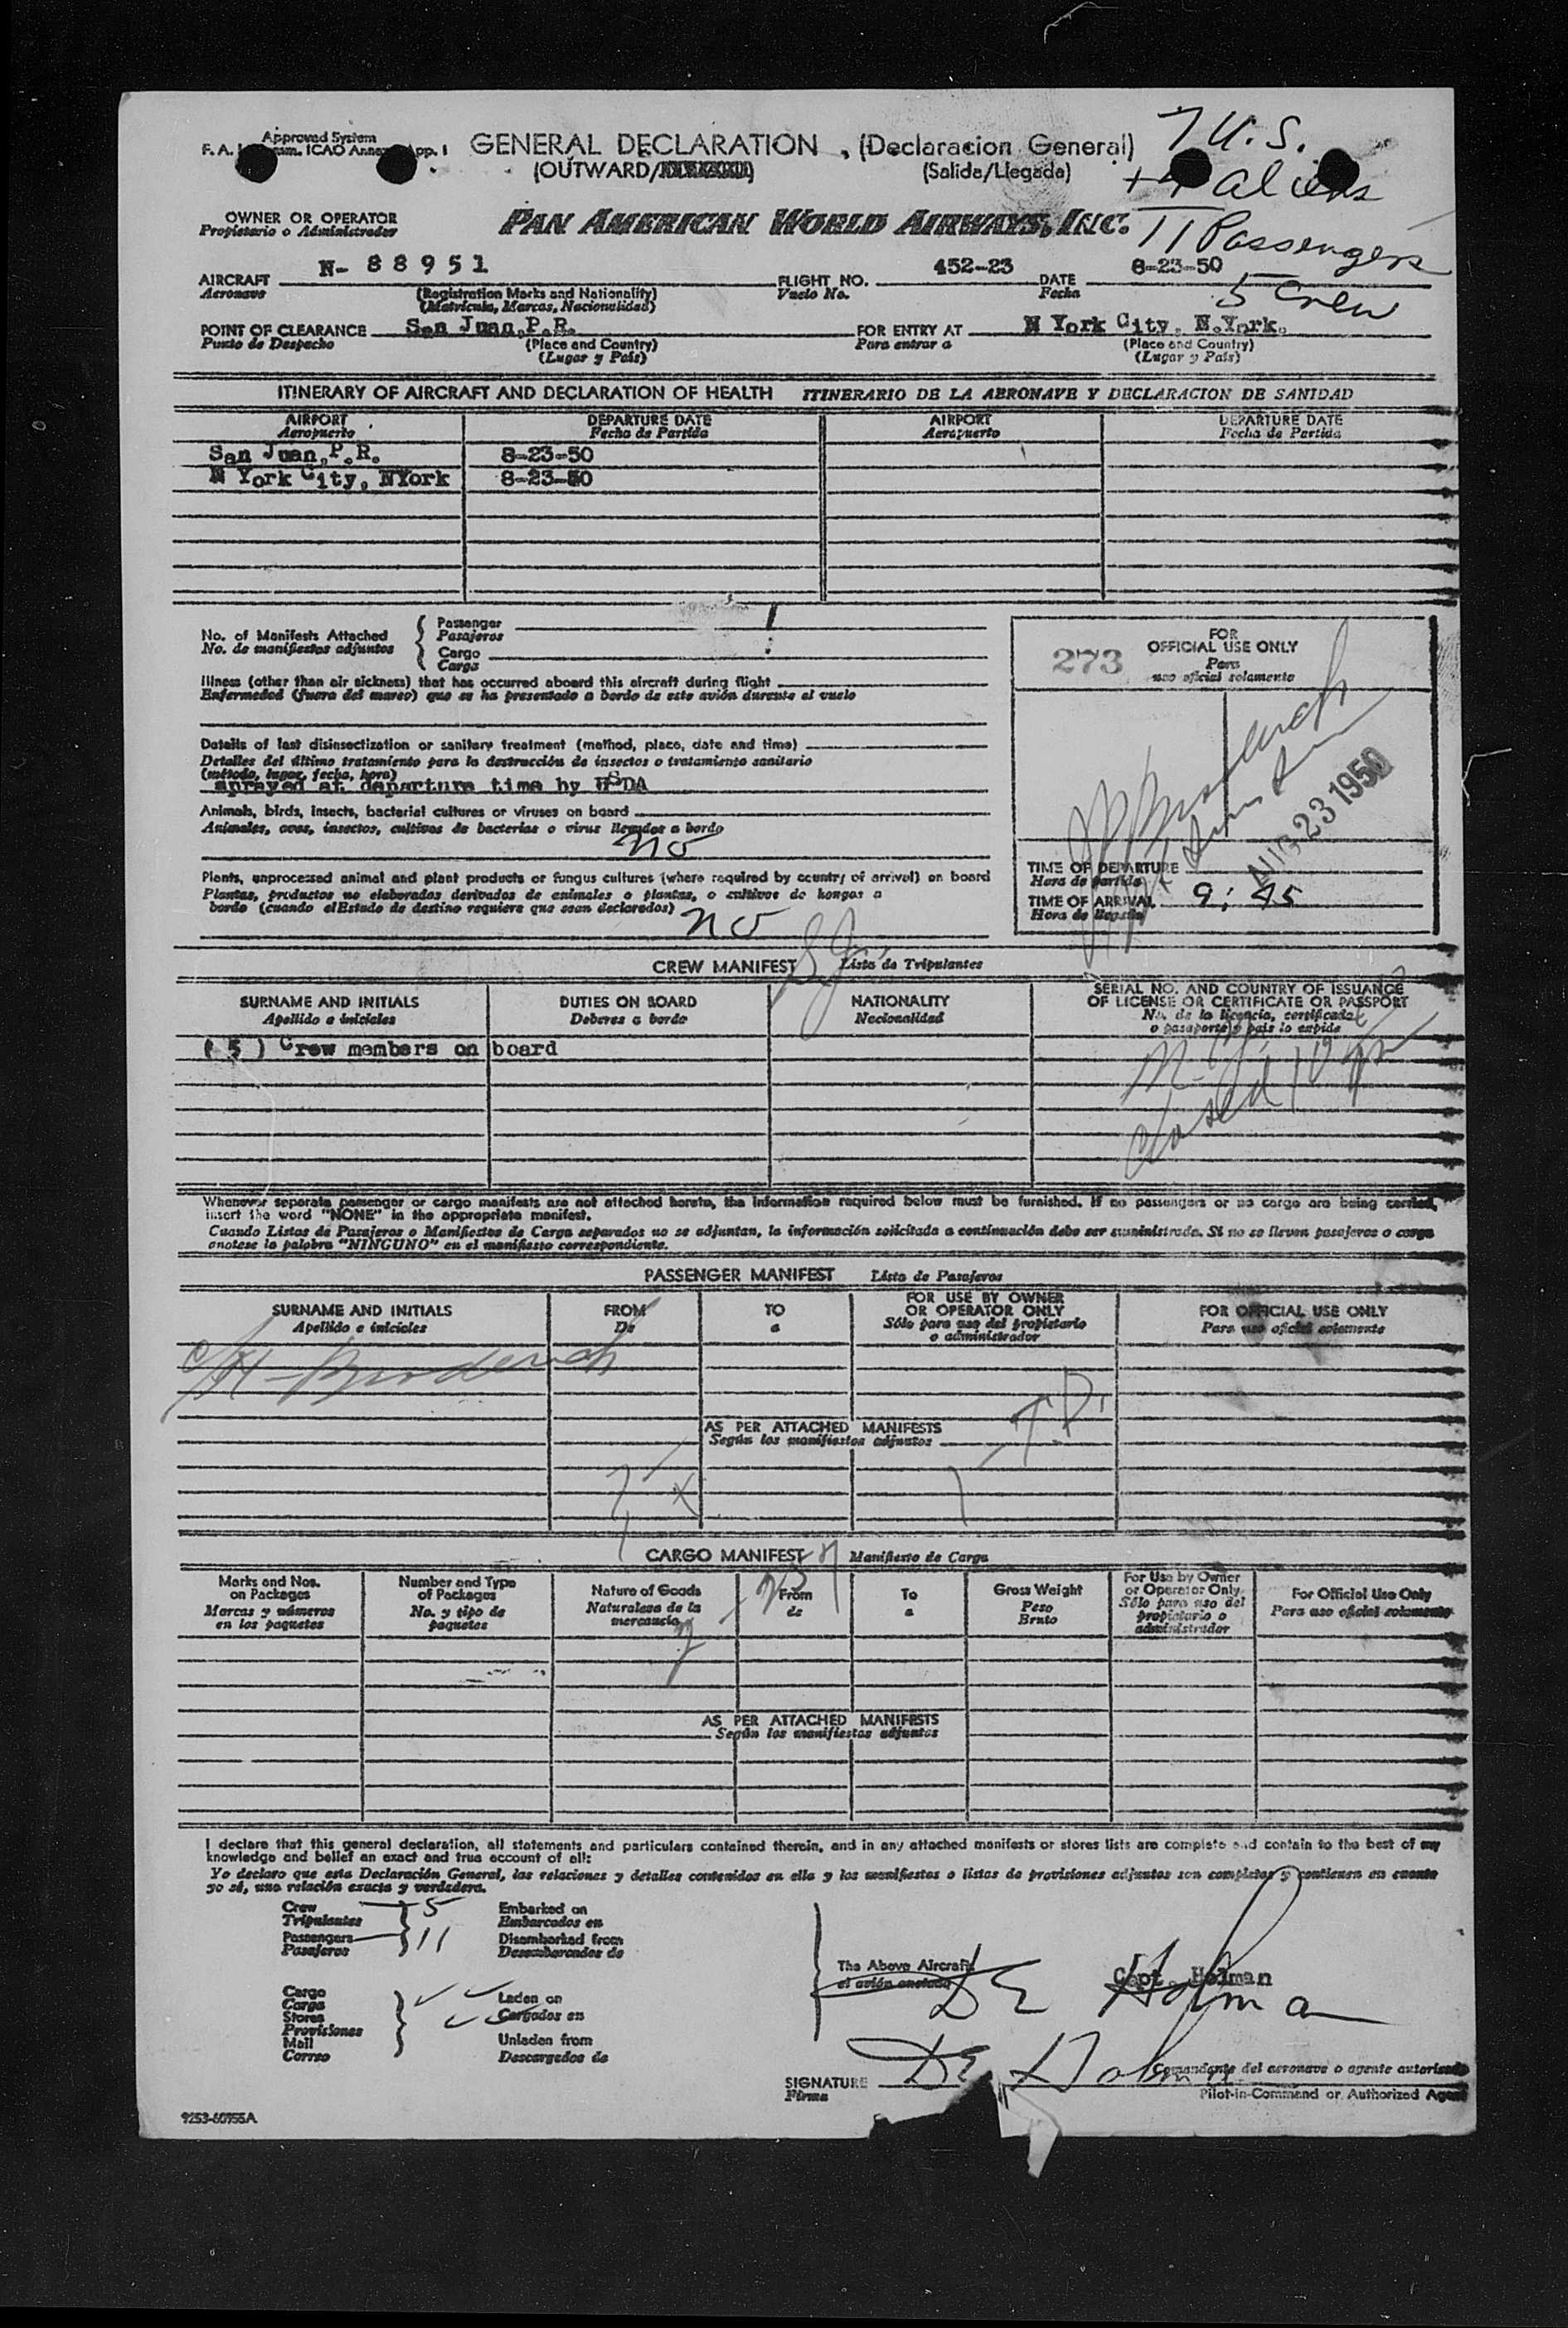 Approved System
F. A. ICAO Annex App. 1
GENERAL DECLARATION (Declaracion General)
(OUTWARD/
(Salida/Llegada)
7 U.S.
+ 4 aliens
11 Passengers
5 Crew
OWNER OR OPERATOR
Propietario o Administrador
PAN AMERICAN WORLD AIRWAYS, INC.
AIRCRAFT N- 88951 FLIGHT NO. 452-23 DATE 8-23-50
Aeronave (Registration Marks and Nationality) Vuelo No. Fecha
(Matricula, Marcas, Nacionalidad)
POINT OF CLEARANCE San Juan, P.R. FOR ENTRY AT N York City, N.York.
Punto de Despacho (Place and Country) Para entrar a (Place and Country)
(Lugar y País) (Lugar y País)
ITINERARY OF AIRCRAFT AND DECLARATION OF HEALTH ITINERARIO DE LA AERONAVE Y DECLARACION DE SANIDAD
AIRPORT DEPARTURE DATE AIRPORT DEPARTURE DATE
Aeropuerto Fecha de Partida Aeropuerto Fecha de Partida
San Juan, P.R. 8-23-50
N York City, NYork 8-23-50
No. of Manifests Attached
No. de manifiestos adjuntos
Passenger
Pasajeros
Cargo
Carga
Illness (other than air sickness) that has occurred aboard this aircraft during flight
Enfermedad (fuera del mareo) que se ha presentado a bordo de este avión durante el vuelo
Details of last disinsectization or sanitary treatment (method, place, date and time)
Detalles del último tratamiento para la destrucción de insectos o tratamiento sanitario
(método, lugar, fecha, hora)
sprayed at departure time by USDA
Animals, birds, insects, bacterial cultures or viruses on board
Animales, aves, insectos, cultivos de bacterias o virus llevados a bordo
no
Plants, unprocessed animal and plant products or fungus cultures (where required by country of arrival) on board
Plantas, productos no elaborados derivados de animales o plantas, o cultivos de hongos a
bordo (cuando el Estado de destino requiera que sean declarados)
no
273
FOR
OFFICIAL USE ONLY
Para
uso oficial solamente
AUG 23 1950
TIME OF DEPARTURE
Hora de partida
TIME OF ARRIVAL 9:45
Hora de llegada
CREW MANIFEST Lista de Tripulantes
SURNAME AND INITIALS DUTIES ON BOARD NATIONALITY SERIAL NO. AND COUNTRY OF ISSUANCE
OF LICENSE OR CERTIFICATE OR PASSPORT
Apellido e iniciales Deberes a bordo Nacionalidad No. de la licencia, certificado
o pasaporte y país lo expide
( 5 ) Crew members on board
Whenever separate passenger or cargo manifests are not attached hereto, the information required below must be furnished. If no passengers or no cargo are being carried,
insert the word "NONE" in the appropriate manifest.
Cuando Listas de Pasajeros o Manifiestos de Carga separados no se adjuntan, la información solicitada a continuación debe ser suministrada. Si no se llevan pasajeros o carga
anotese la palabra "NINGUNO" en el manifiesto correspondiente.
PASSENGER MANIFEST Lista de Pasajeros
SURNAME AND INITIALS FROM TO FOR USE BY OWNER
OR OPERATOR ONLY FOR OFFICIAL USE ONLY
Apellido e iniciales De a Sólo para uso del propietario
o administrador Para uso oficial solamente
AS PER ATTACHED MANIFESTS
Según los manifiestos adjuntos
CARGO MANIFEST Manifiesto de Carga
Marks and Nos.
on Packages
Marcas y números
en los paquetes
Number and Type
of Packages
No. y tipo de
paquetes
Nature of Goods
Naturaleza de la
mercancia
From
de
To
a
Gross Weight
Peso
Bruto
For Use by Owner
or Operator Only
Sólo para uso del
propietario o
administrador
For Official Use Only
Para uso oficial solamente
AS PER ATTACHED MANIFESTS
Según los manifiestos adjuntos
I declare that this general declaration, all statements and particulars contained therein, and in any attached manifests or stores lists are complete and contain to the best of my
knowledge and belief an exact and true account of all:
Yo declaro que esta Declaración General, las relaciones y detalles contenidos en ella y los manifiestos o listas de provisiones adjuntas son completas y contienen en cuanto
yo sé, una relación exacta y verdadera.
Crew 5 Embarked on
Tripulantes Embarcados en
Passengers 11 Disembarked from
Pasajeros Desembarcados de
Cargo
Carga
Stores
Provisiones
Mail
Correo
Laden on
Cargados en
Unladen from
Descargados de
The Above Aircraft
el avión anotado
Capt. Holman
DE Holman
DE Holman
SIGNATURE
Firma
Comandante del aeronave o agente autorizado
Pilot-in-Command or Authorized Agent
9253-60955A